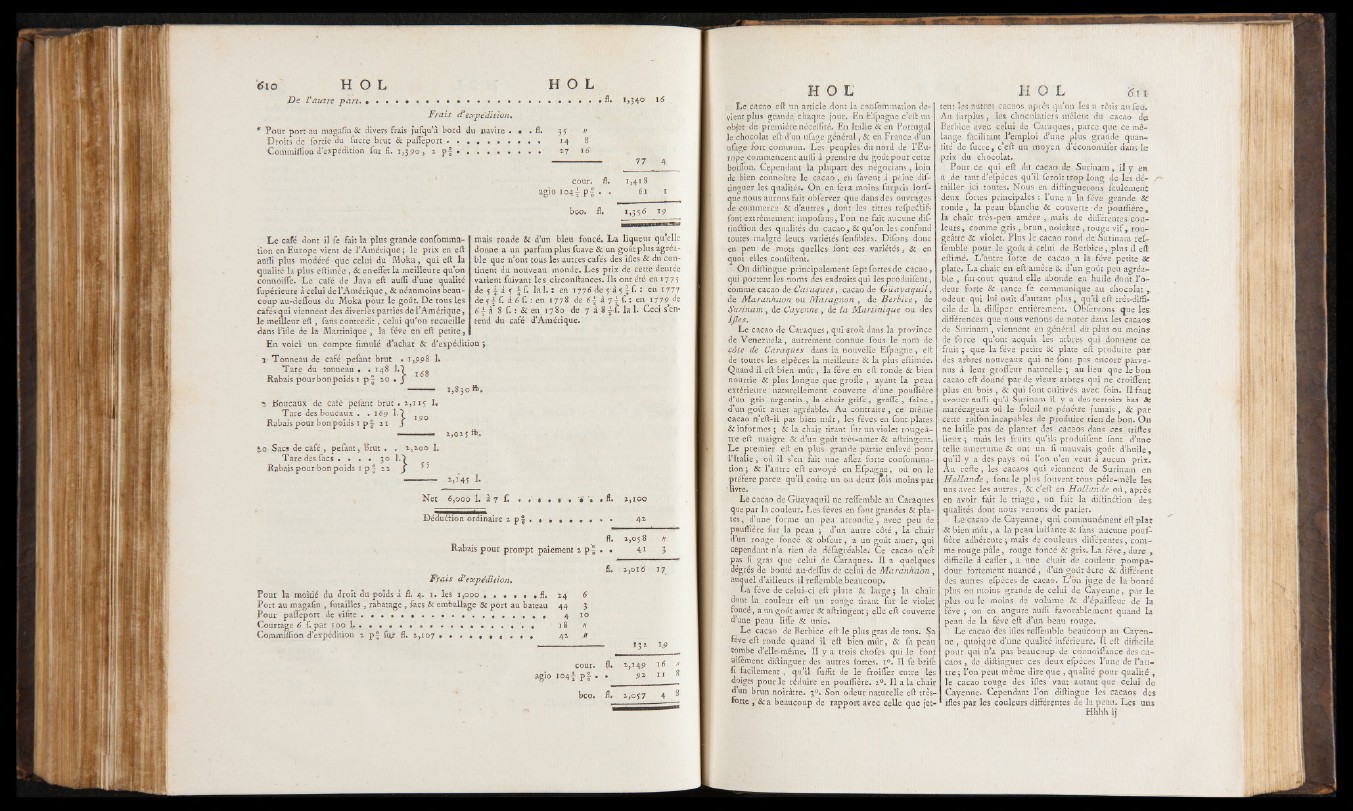 610 HOL HOL
De l'autre part. . . . . . . . . . . . . . . . . . . . fl. 1,340 16
Frais d'expédition.
* Pour port au magasin & divers frais jusqu'à bord du navire . . . fl. 35 "
Droits de sortie du sucre brut & passeport . . . . . . . . . 14 8
Commission d'expédition sur fl. 1,390, 2 p% . . . . . . . . . 27 16
77 4
cour. fl. 1,418
agio 104½ p% . . 61 1
bco. fl. 1,356 19
Le café dont il se fait la plus grande consomma-
tion en Europe vient de l'Amérique; le prix en est
aussi plus modéré que celui du Moka, qui est la
qualité la plus estimée, & en effet la meilleure qu'on
connoisse. Le café de Java est aussi d'une qualité
supérieure à celui de l'Amérique, & néanmoins beau-
coup au-dessous du Moka pour le goût. De tous les
cafés qui viennent des diverses parties de l'Amérique,
le meilleur est, sans contredit, celui qu'on recueille
dans l'isle de la Martinique, la féve en est petite,
mais ronde & d'un bleu foncé. La liqueur qu'elle
donne a un parfum plus suave & un goût plus agréa-
ble que n'ont tous les autres cafés des isles & du con-
tinent du nouveau monde. Les prix de cette denrée
varient suivant les circonstances. Ils ont été en 1775
de 5 ¼ à 5 ½ s. la l. : en 1776 de 5 à 5 ½ s. : en 1777
de 5 ½ s. à 6 s. : en 1778 de 6 ½ à 7 ½ s. : en 1779 de
6 ½ à 8 s. : & en 1780 de 7 à 8 ½ s. la l. Ceci s'en-
tend du café d'Amérique.
En voici un compte simulé d'achat & d'expédition;
3 Tonneau de café pesant brut . 1,998 l.
Tare du tonneau . . 148 l. } 168
Rabais pour bon poids 1 p% 20 . }
1,830 ℔.
3 Boucaux de café pesant brut . 2,215 l.
Tare des boucaux . . 169 l. } 190
Rabais pour bon poids 1 p% 21 }
2,025 ℔.
20 Sacs de café, pesant, brut . . 2,200 l.
Tare des sacs . . . . 30 l. } 55
Rabais pour bon poids 1 p% 22 }
2,145 l.
Net 6,000 l. à 7 s. . . . . . . . . . fl. 2,100
Déduction ordinaire 2 p% . . . . . . . . 42
fl. 2,058 "
Rabais pour prompt paiement 2 p% . . 41 3
fl. 2,016 17
Frais d'expédition.
Pour la moitié du droit du poids à fl. 4. 1. les 1,000 . . . . . . fl. 24 6
Port au magasin, futailles, rabatage, sacs & emballage & port au bateau 44 3
Pour passeport de visite . . . . . . . . . . . . . . . . 4 10
Courtage 6 s. par 100 l. . . . . . . . . . . . . . . . . 18 "
Commission d'expédition 2 p% sur fl. 2,107 . . . . . . . . . 42 "
132 19
cour. fl. 2,149 16 "
agio 104½ p% . . 92 11 8
bco. fl. 2,057 4 8
HOL HOL 611
Le cacao est un article dont la consommation de-
vient plus grande chaque jour. En Espagne c'est un
objet de première nécessité. En Italie & en Portugal
le chocolat est d'un usage général, & en France d'un
usage fort commun. Les peuples du nord de l'Eu-
rope commencent aussi à prendre du goût pour cette
boisson. Cependant la plupart des négocians, loin
de bien connoître le cacao, en savent à peine dis-
tinguer les qualités. On en sera moins surpris lors-
que nous aurons fait observer que dans des ouvrages
de commerce & d'autres, dont les titres respectifs
sont extrêmement imposans, l'on ne fait aucune dis-
tinction des qualités du cacao, & qu'on les confond
toutes malgré leurs variétés sensibles. Disons donc
en peu de mots quelles sont ces variétés, & en
quoi elles consistent.
On distingue principalement sept sortes de cacao,
qui portent les noms des endroits qui les produisent,
comme cacao de Caraques, cacao de Guayaquil,
de Maranhaon ou Maragnon, de Berbice, de
Surinam, de Cayenne, de la Martinique ou des
Isles.
Le cacao de Caraques, qui croît dans la province
de Venezuela, autrement connue sous le nom de
côte de Caraques dans la nouvelle Espagne, est
de toutes les espèces la meilleure & la plus estimée.
Quand il est bien mûr, la féve en est ronde & bien
nourrie & plus longue que grosse, ayant la peau
extérieure naturellement couverte d'une poussière
d'un gris argentin, la chair grise, grasse, saine,
d'un goût amer agréable. Au contraire, ce même
cacao n'est-il pas bien mûr, les féves en sont plates
& informes; & la chair tirant sur un violet rougeâ-
tre est maigre & d'un goût très-amer & astringent.
Le premier est en plus grande partie enlevé pour
l'Italie, où il s'en fait une assez forte consomma-
tion; & l'autre est envoyé en Espagne, où on le
préfère parce qu'il coûte un ou deux sols moins par
livre.
Le cacao de Guayaquil ne ressemble au Caraques
que par la couleur. Les féves en sont grandes & pla-
tes, d'une forme un peu arrondie, avec peu de
poussière sur la peau; d'un autre côté, la chair
d'un rouge foncé & obscur, a un goût amer, qui
cependant n'a rien de désagréable. Ce cacao n'est
pas si gras que celui de Caraques. Il a quelques
dégrés de bonté au-dessus de celui de Maranhaon,
auquel d'ailleurs il ressemble beaucoup.
La féve de celui-ci est plate & large; la chair
dont la couleur est un rouge tirant sur le violet
foncé, a un goût amer & astringent; elle est couverte
d'une peau lisse & unie.
Le cacao de Berbice est le plus gras de tous. Sa
féve est ronde quand il est bien mûr, & sa peau
tombe d'elle-même. Il y a trois choses qui le font
aisément distinguer des autres sortes. 1°. Il se brise
si facilement, qu'il suffit de le froisser entre les
doigts pour le réduire en poussière. 2°. Il a la chair
d'un brun noirâtre. 3°. Son odeur naturelle est très-
forte, & a beaucoup de rapport avec celle que jet-
tent les autres cacaos après qu'on les a rôtis au feu.
Au surplus, les chocolatiers mêlent du cacao de
Berbice avec celui de Caraques, parce que ce mé-
lange facilitant l'emploi d'une plus grande quan-
tité de sucre, c'est un moyen d'économiser dans le
prix du chocolat.
Pour ce qui est du cacao de Surinam, il y en
a de tant d'espèces qu'il seroit trop long de les dé-
tailler ici toutes. Nous en distinguerons seulement
deux sortes principales: l'une a la féve grande &
ronde, la peau blanche & couverte de poussière,
la chair très-peu amère, mais de différentes cou-
leurs, comme gris, brun, noirâtre, rouge vif, rou-
geâtre & violet. Plus le cacao rond de Surinam res-
semble pour le goût à celui de Berbice, plus il est
estimé. L'autre sorte de cacao a la féve petite &
plate. La chair en est amère & d'un goût peu agréa-
ble, sur-tout quand elle abonde en huile dont l'o-
deur forte & rance se communique au chocolat,
odeur qui lui nuit d'autant plus, qu'il est très-diffi-
cile de la dissiper entièrement. Observons que les
différences que nous venons de noter dans les cacaos
de Surinam, viennent en général du plus ou moins
de force qu'ont acquis les arbres qui donnent ce
fruit; que la féve petite & plate est produite par
des arbres nouveaux qui ne sont pas encore parve-
nus à leur grosseur naturelle; au lieu que le bon
cacao est donné par de vieux arbres qui ne croissent
plus en bois, & qui sont cultivés avec soin. Il faut
avouer aussi qu'à Surinam il y a des terroirs bas &
marécageux où le soleil ne pénètre jamais, & par
cette raison incapables de produire rien de bon. On
ne laisse pas de planter des cacaos dans ces tristes
lieux; mais les fruits qu'ils produisent sont d'une
telle amertume & ont un si mauvais goût d'huile,
qu'il y a des pays où l'on n'en veut à aucun prix.
Au reste, les cacaos qui viennent de Surinam en
Hollande, sont le plus souvent tous pêle-mêle les
uns avec les autres, & c'est en Hollande où, après
en avoir fait le triage, on fait la distinction des
qualités dont nous venons de parler.
Le cacao de Cayenne, qui communément est plat
& bien mûr, a la peau luisante & sans aucune pous-
sière adhérente; mais de couleurs différentes, com-
me rouge pâle, rouge foncé & gris. La féve, dure,
difficile à casser, a une chair de couleur pompa-
dour fortement nuancé, d'un goût âcre & différent
des autres espèces de cacao. L'on juge de la bonté
plus ou moins grande de celui de Cayenne, par le
plus ou le moins de volume & d'épaisseur de la
féve; on en augure aussi favorablement quand la
peau de la féve est d'un beau rouge.
Le cacao des isles ressemble beaucoup au Cayen-
ne, quoique d'une qualité inférieure. Il est difficile
pour qui n'a pas beaucoup de connoissance des ca-
caos, de distinguer ces deux espèces l'une de l'au-
tre; l'on peut même dire que, qualité pour qualité,
le cacao rouge des isles vaut autant que celui de
Cayenne. Cependant l'on distingue les cacaos des
isles par les couleurs différentes de la peau. Les uns
Hhhh ij